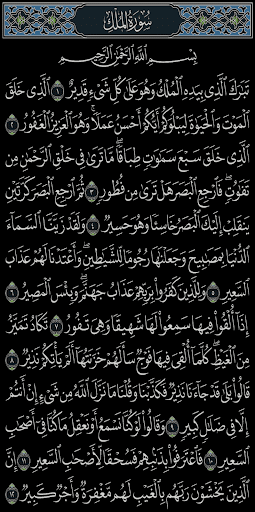 سُورَةُ المُلْكِ
بِسْمِ اللَّهِ الرَّحْمَٰنِ الرَّحِيمِ
تَبَٰرَكَ ٱلَّذِي بِيَدِهِ ٱلْمُلْكُ وَهُوَ عَلَىٰ كُلِّ شَيْءٍ قَدِيرٌ ١ ٱلَّذِي خَلَقَ
ٱلْمَوْتَ وَٱلْحَيَوٰةَ لِيَبْلُوَكُمْ أَيُّكُمْ أَحْسَنُ عَمَلًا ۚ وَهُوَ ٱلْعَزِيزُ ٱلْغَفُورُ ٢
ٱلَّذِي خَلَقَ سَبْعَ سَمَٰوَٰتٍ طِبَاقًا ۖ مَّا تَرَىٰ فِي خَلْقِ ٱلرَّحْمَٰنِ مِن
تَفَٰوُتٍ ۖ فَٱرْجِعِ ٱلْبَصَرَ هَلْ تَرَىٰ مِن فُطُورٍ ٣ ثُمَّ ٱرْجِعِ ٱلْبَصَرَ كَرَّتَيْنِ
يَنقَلِبْ إِلَيْكَ ٱلْبَصَرُ خَاسِئًا وَهُوَ حَسِيرٌ ٤ وَلَقَدْ زَيَّنَّا ٱلسَّمَآءَ
ٱلدُّنْيَا بِمَصَٰبِيحَ وَجَعَلْنَٰهَا رُجُومًا لِّلشَّيَٰطِينِ ۖ وَأَعْتَدْنَا لَهُمْ عَذَابَ
ٱلسَّعِيرِ ٥ وَلِلَّذِينَ كَفَرُوا۟ بِرَبِّهِمْ عَذَابُ جَهَنَّمَ ۖ وَبِئْسَ ٱلْمَصِيرُ ٦
إِذَآ أُلْقُوا۟ فِيهَا سَمِعُوا۟ لَهَا شَهِيقًا وَهِيَ تَفُورُ ٧ تَكَادُ تَمَيَّزُ
مِنَ ٱلْغَيْظِ ۖ كُلَّمَآ أُلْقِيَ فِيهَا فَوْجٌ سَأَلَهُمْ خَزَنَتُهَآ أَلَمْ يَأْتِكُمْ نَذِيرٌ ٨
قَالُوا۟ بَلَىٰ قَدْ جَآءَنَا نَذِيرٌ فَكَذَّبْنَا وَقُلْنَا مَا نَزَّلَ ٱللَّهُ مِن شَيْءٍ إِنْ أَنتُمْ
إِلَّا فِي ضَلَٰلٍ كَبِيرٍ ٩ وَقَالُوا۟ لَوْ كُنَّا نَسْمَعُ أَوْ نَعْقِلُ مَا كُنَّا فِيٓ أَصْحَٰبِ
ٱلسَّعِيرِ ١٠ فَٱعْتَرَفُوا۟ بِذَنۢبِهِمْ فَسُحْقًا لِّأَصْحَٰبِ ٱلسَّعِيرِ ١١ إِنَّ
ٱلَّذِينَ يَخْشَوْنَ رَبَّهُم بِٱلْغَيْبِ لَهُم مَّغْفِرَةٌ وَأَجْرٌ كَبِيرٌ ١٢